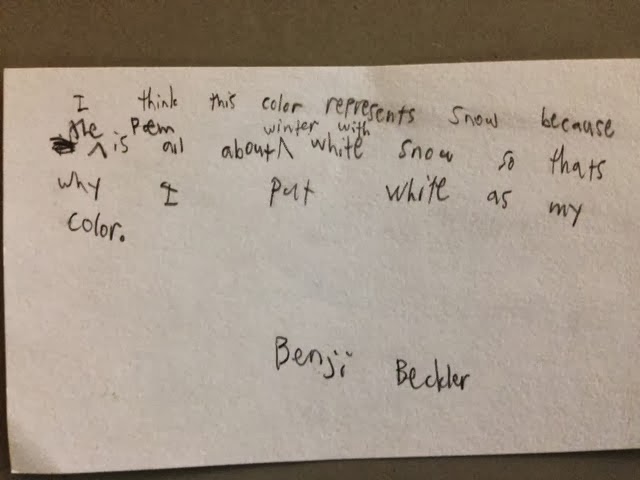 I think this color represents snow because
the Poem winter with
is all about white snow so thats
why I put white as my
color.
Benji Beckler